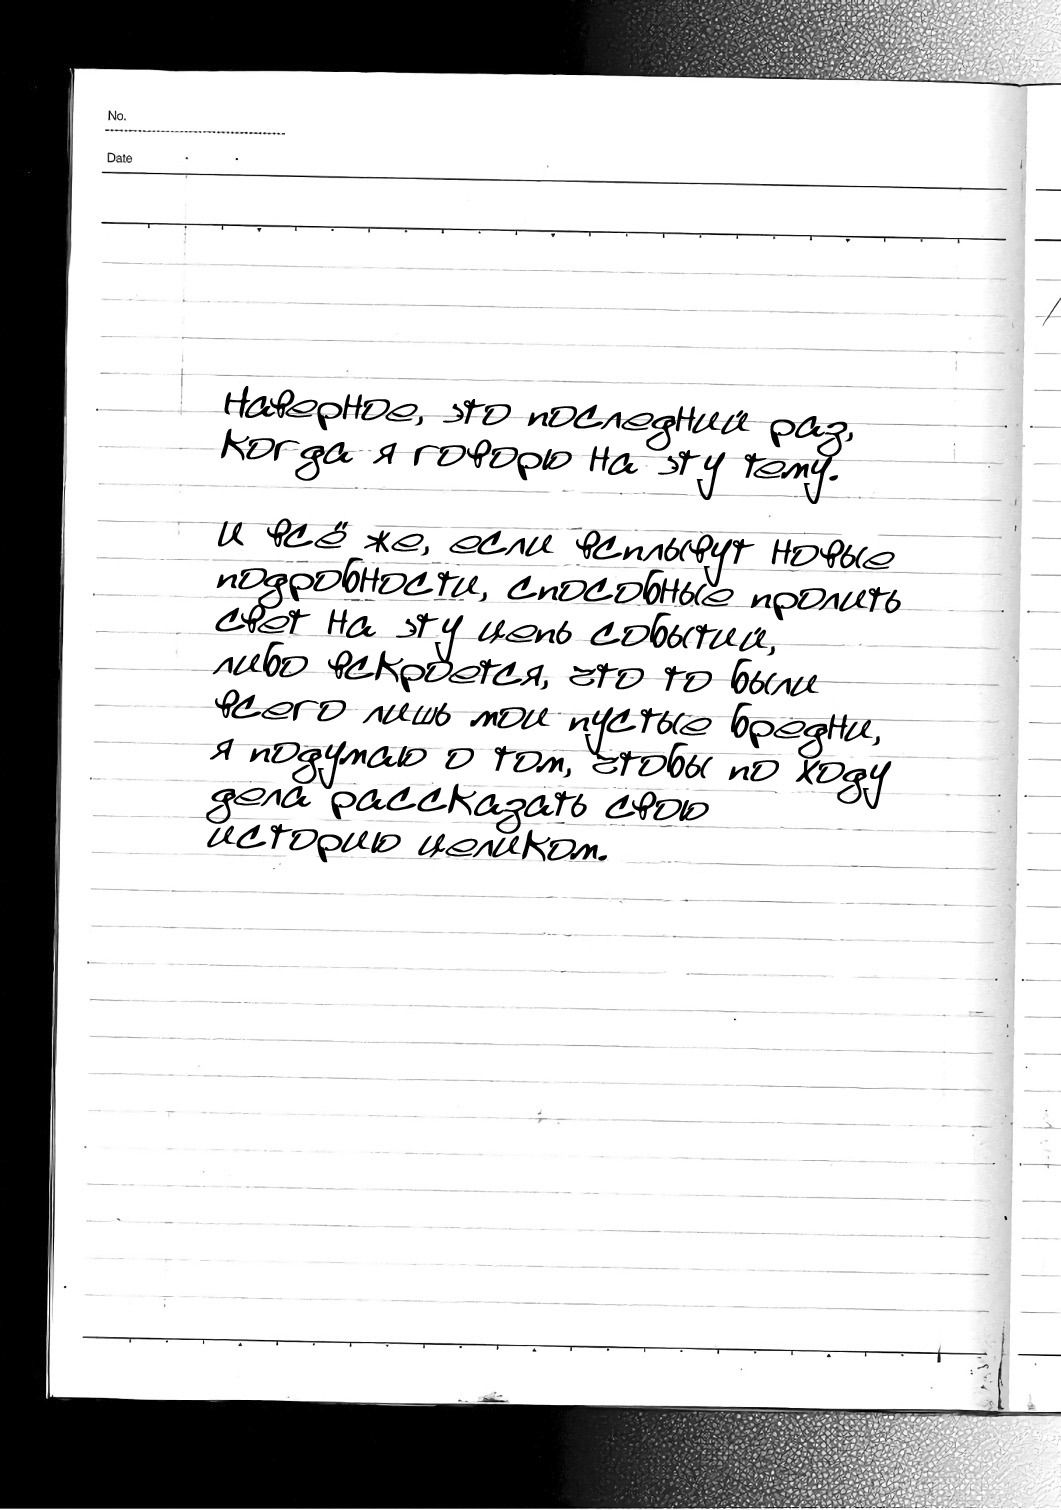 No.
Date
Наверное, это последний раз,
когда я говорю на эту тему.
И всё же, если всплывут новые
подробности, способные пролить
свет на эту цепь событий,
либо вскроется, что то были
всего лишь мои пустые бредни,
я подумаю о том, чтобы по ходу
дела рассказать свою
историю целиком.